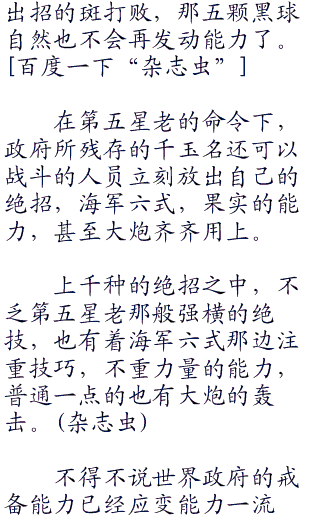 出招的斑打败，那五颗黑球
自然也不会再发动能力了。
[百度一下“杂志虫”]
在第五星老的命令下，
政府所残存的千玉名还可以
战斗的人员立刻放出自己的
绝招，海军六式，果实的能
力，甚至大炮齐齐用上。
上千种的绝招之中，不
乏第五星老那般强横的绝
技，也有着海军六式那边注
重技巧，不重力量的能力，
普通一点的也有大炮的轰
击。(杂志虫)
不得不说世界政府的戒
备能力已经应变能力一流